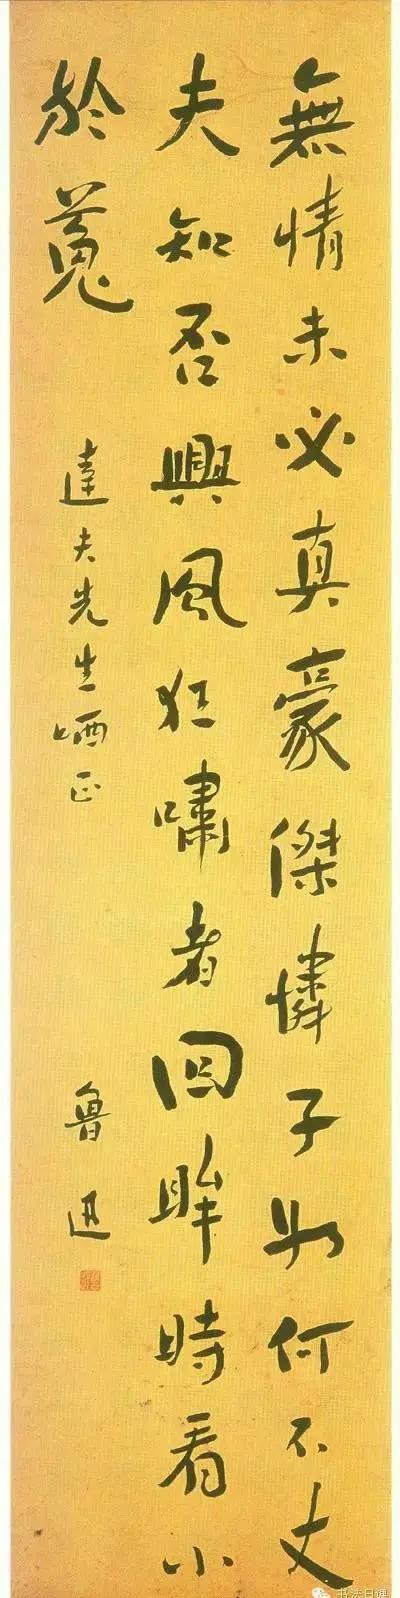 無情未必真豪傑憐子如何不丈
夫知否興風狂嘯者回眸時看小
於菟
達夫先生哂正
魯迅
书法日课